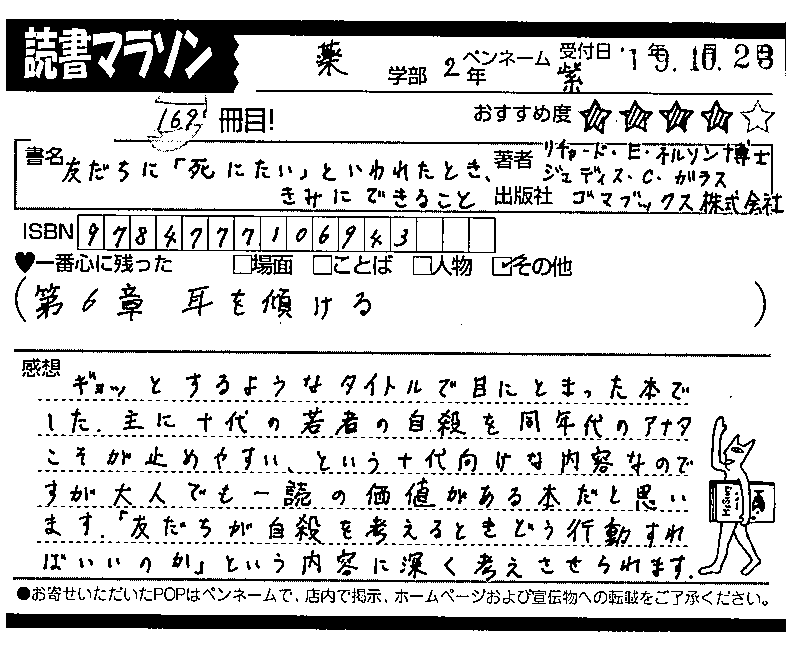 読書マラソン
薬 学部 2年 ペンネーム 紫 受付日 '19.10.28
169 冊目!
おすすめ度 ★★★★☆
書名 友だちに「死にたい」といわれたとき、
きみにできること
著者 リチャード・E・ネルソン博士
ジュディス・C・ガラス
出版社 ゴマブックス株式会社
ISBN 9784777106943
♥一番心に残った □場面 □ことば □人物 ☑その他
(第6章 耳を傾ける)
感想
ギョッとするようなタイトルで目にとまった本で
した。主に十代の若者の自殺を同年代のアナタ
こそが止めやすい、という十代向けな内容なので
すが大人でも一読の価値がある本だと思い
ます。「友だちが自殺を考えるときどう行動すれ
ばいいのか」という内容に深く考えさせられます。
●お寄せいただいたPOPはペンネームで、店内で掲示、ホームページおよび宣伝物への転載をご了承ください。